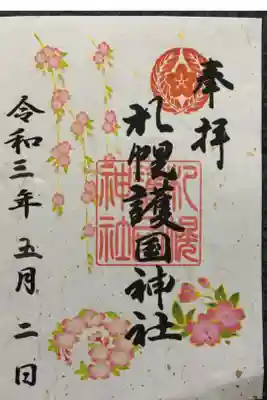 奉拝
札幌護国神社
札幌護国神社
令和三年五月二日